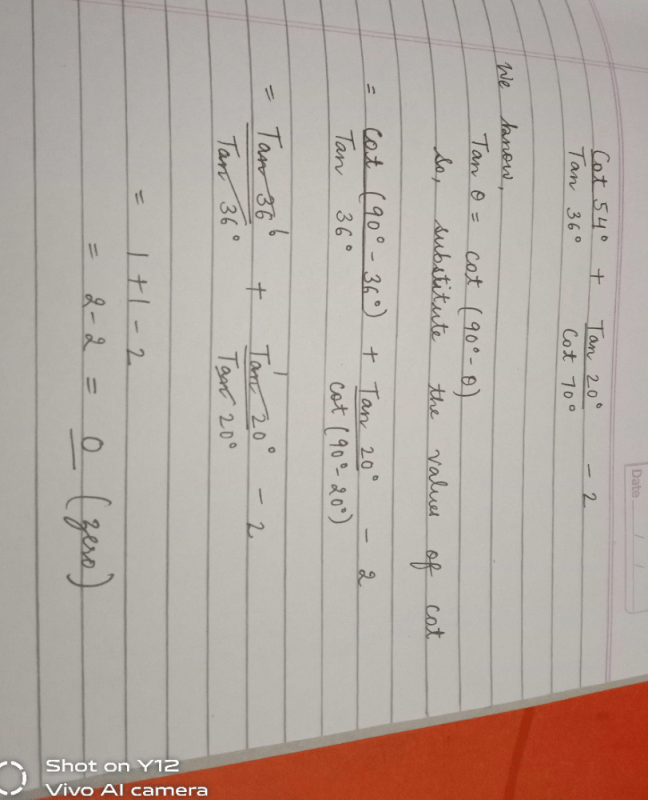 Date
Cot 54° / Tan 36° + Tan 20° / Cot 70° - 2
We know,
Tan θ = cot (90° - θ)
So, substitute the values of cot
= Cot (90° - 36°) / Tan 36° + Tan 20° / cot (90° - 20°) - 2
= Tan 36° / Tan 36° + Tan 20° / Tan 20° - 2
= 1 + 1 - 2
= 2 - 2 = 0 (zero)
Shot on Y12
Vivo AI camera